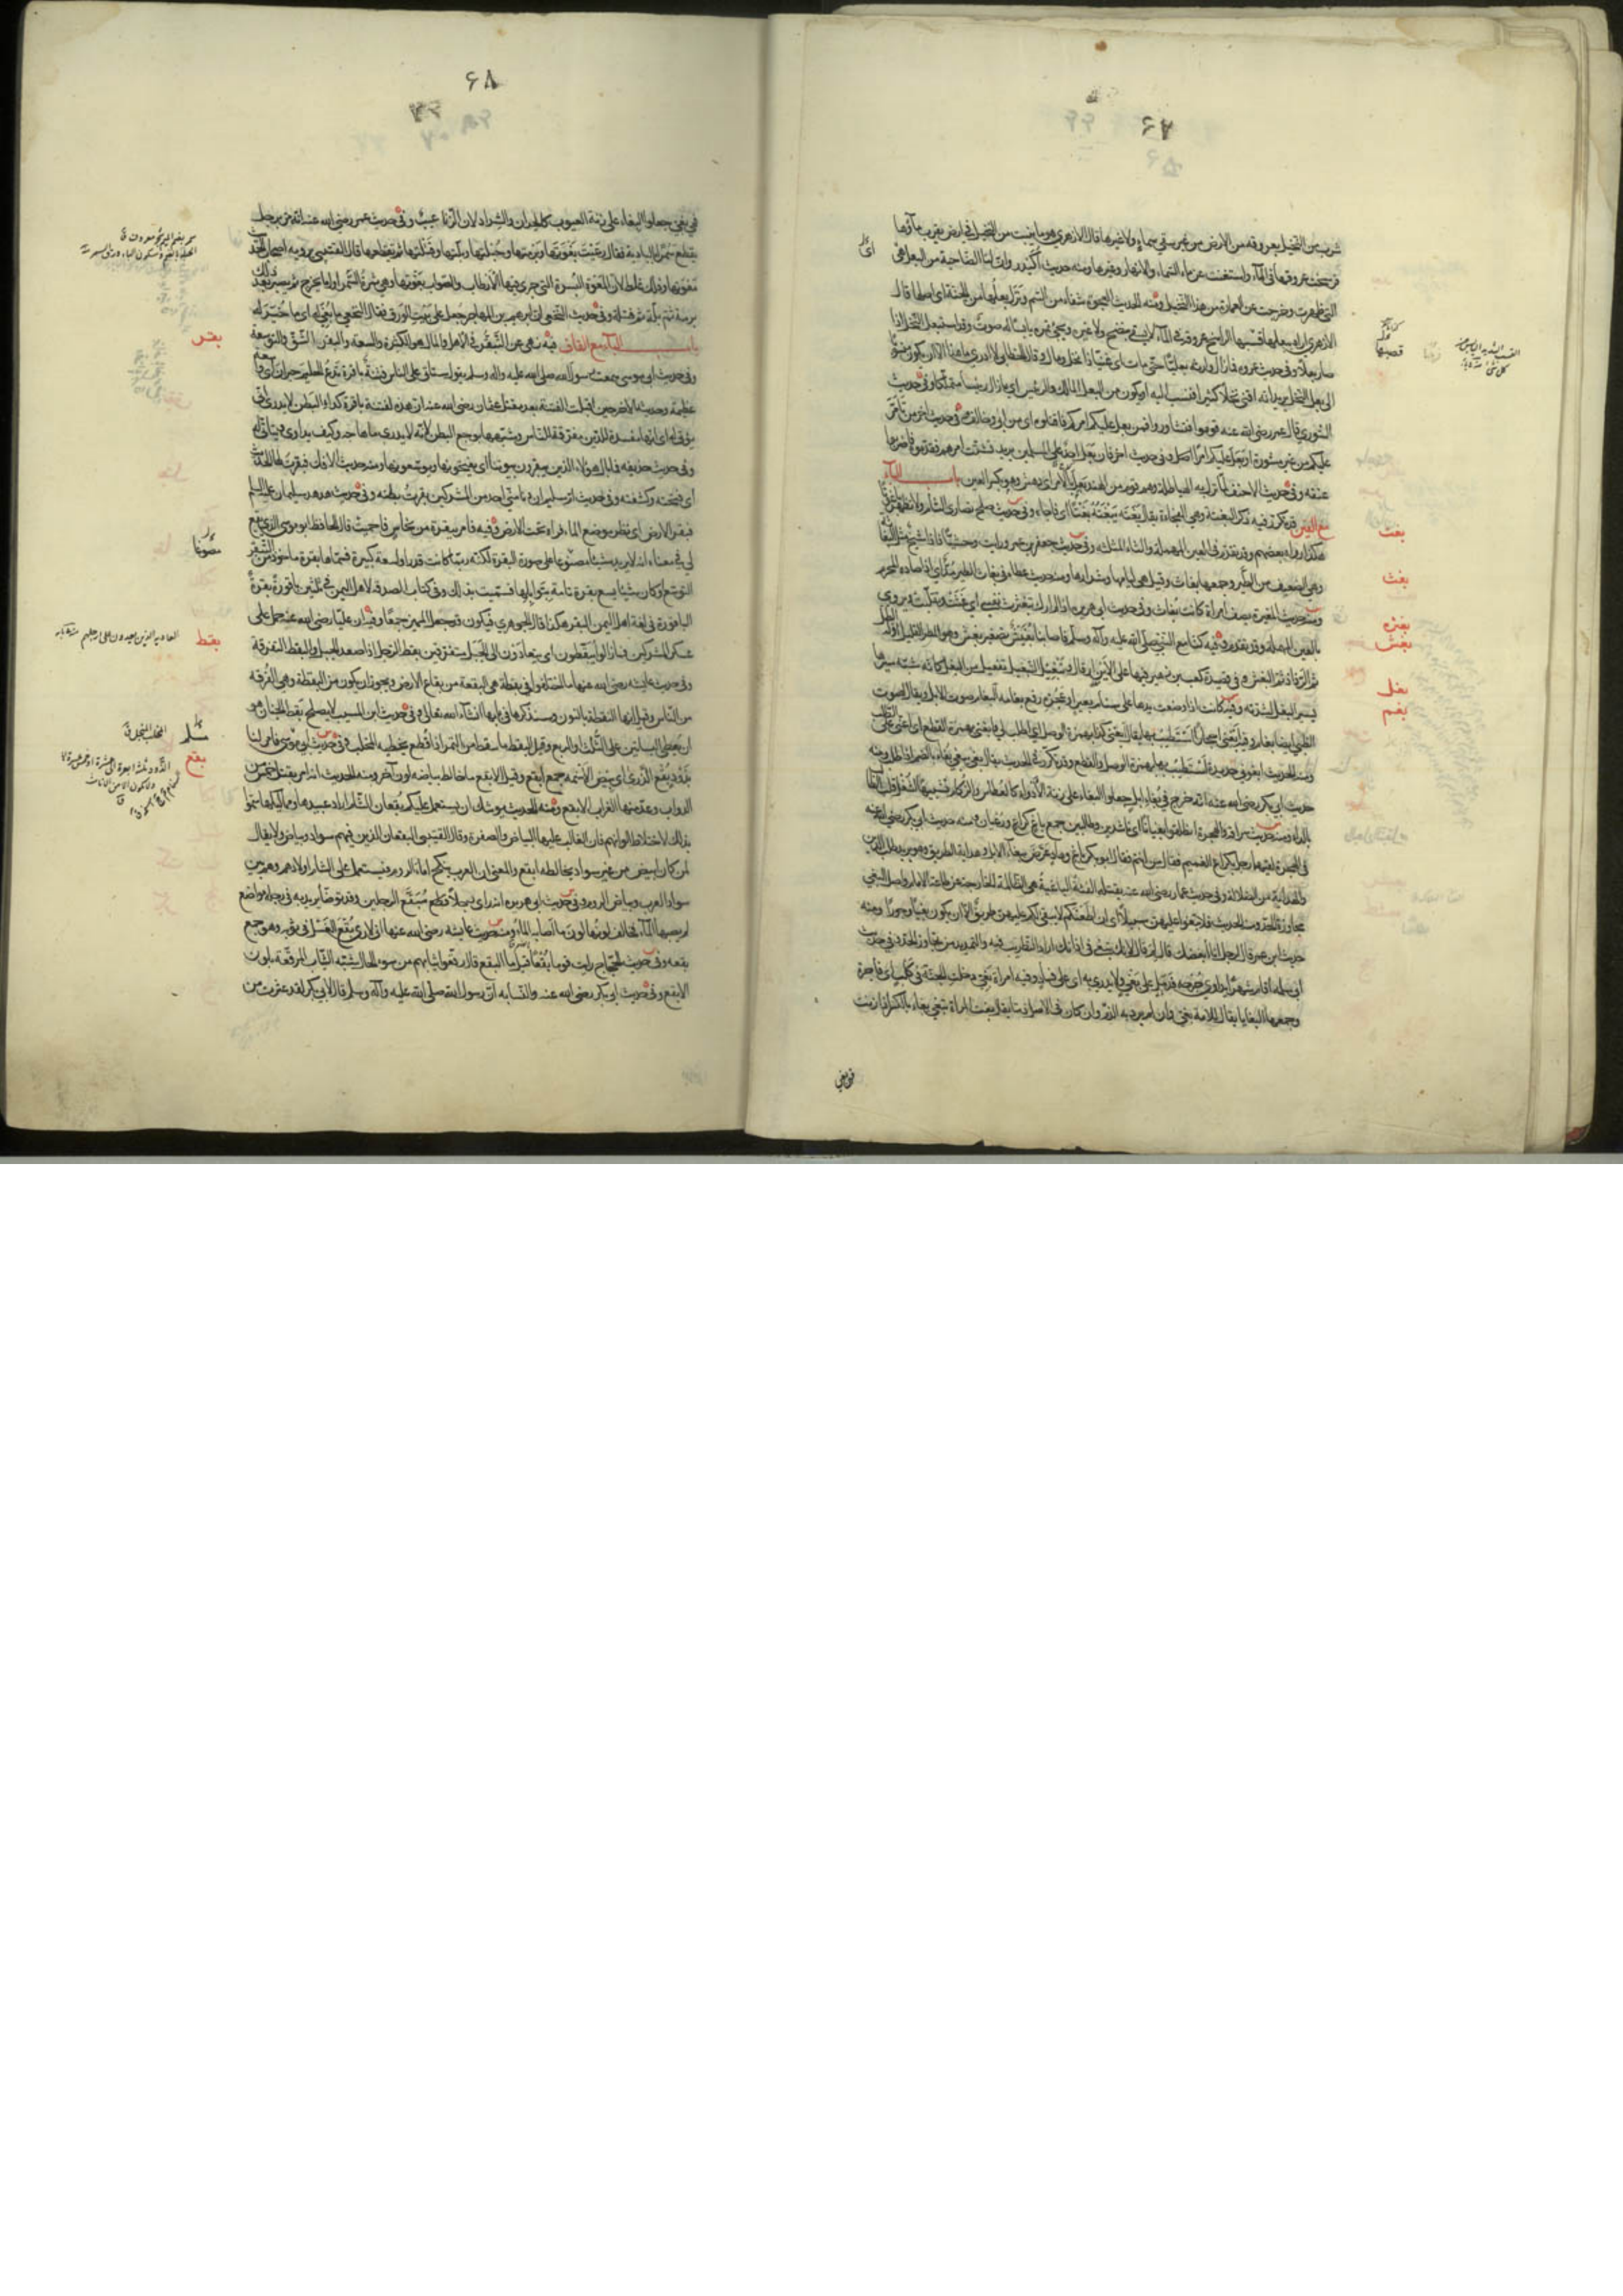 ۶۷
شرب من النخيل بعروقه من الارض من غير سقي سماء ولا غيرها قال الازهري هو ما ينبت من النخل في ارض يقرب ماؤها
فرسخت عروقها في الماء واستغنت عن ماء السماء والانهار وغيرها ومنه حديث اكيدر وان لنا الضاحية من البعل اي
التي ظهرت وخرجت عن العمارة من هذا النخيل ومنه الحديث العجوة شفاء من السم ونزل بعلها من الجنة اي اصلها قال
الازهري اراد ببعلها قسبها الراسخ عروقه في الماء لا يسقى بنضح ولا غيره ويجئ ثمره يابسا له صوت وقد استبعل النخل اذا
صار بعلا وفي حديث عروة فما زال وارثه بعليا حتى مات اي غنيا ذا نخل ومال قال الخطابي لا ادري ما هذا الا ان يكون منسوبا
الى بعل النخل يريد انه اقتنى نخلا كثيرا فنسب اليه او يكون من البعل المالك والرئيس اي ما زال رئيسا متملكا وفي حديث
الشورى قال عمر رضي الله عنه قوموا فتشاوروا فمن بعل عليكم امركم فاقتلوه اي من ابى وخالف وفي حديث اخر من تامر
عليكم من غير مشورة او بعل عليكم امرا وفي حديث اخر فان بعل احد على المسلمين يريد تشتت امرهم فقدموه فاضربوا
عنقه وفي حديث الاحنف لما نزل به الهياطلة وهم قوم من الهند بعل بالامر اي دهش وهو بكسر العين باب الباء
مع الغين قد تكرر فيه ذكر البغتة وهي الفجأة يقال بغته يبغته بغتا اي فاجأه وفي حديث صلح نصارى الشام ولا تظهر باغوتا
هكذا رواه بعضهم وقد تقدم في العين المهملة والثاء المثلثة وفي حديث جعفر بن عمرو رايت وحشيا فاذا شيخ مثل البغاثة
وهي الضعيف من الطير وجمعها بغاث وقيل هي لئامها وشرارها ومنه حديث عطاء في بغاث الطير مد اي اذا صاده المحرم
ومنه حديث المغيرة يصف امراة كانها بغاث وفي حديث ابي هريرة اذا لم ارك تبغثرت نفسي اي غثت وتقلبت ويروى
بالعين المهملة وقد تقدم وفيه كنا مع النبي صلى الله عليه وآله وسلم فاصابنا بغيش تصغير بغش وهو المطر القليل اوله الطل
ثم الرذاذ ثم البغش وفي قصيدة كعب بن زهير فيها على الاين ارقال وتبغيل التبغيل تفعيل من البغل كانه شبه سيرها
بسير البغل لشدته وفيه كانت اذا وضعت يدها على سنام بعير او عجزه رفع بغامه البغام صوت الابل ويقال لصوت
الظبي ايضا بغام وفيه ابغني احجارا استطيب بها يقال ابغني كذا بهمزة الوصل اي اطلب لي وابغني بهمزة القطع اي اعني على الطلب
ومنه الحديث ابغوني حديدة استطيب بها بهمزة الوصل والقطع وقد تكرر في الحديث يقال بغى يبغي بغاء بالضم اذا طلب ومنه
حديث ابي بكر رضي الله عنه انه خرج في بغاء ابل جعلوا البغاء على زنة الادواء كالعطاس والزكام تشبيها لشغل قلب الطالب
بالداء ومنه حديث سراقة والهجرة انطلقوا بغيانا اي ناشدين وطالبين جمع باغ كراع ورعيان ومنه حديث ابي بكر رضي الله عنه
في الهجرة لقيهما رجل بكراع الغميم فقال من انتم فقال ابو بكر باغ وهاد عرض ببغاء الابل وهداية الطريق وهو يريد طلب الدين
والهداية من الضلالة وفي حديث عمار رضي الله عنه تقتله الفئة الباغية هي الظالمة الخارجة عن طاعة الامام واصل البغي
مجاوزة الحد ومنه الحديث فلا تبغوا عليهن سبيلا اي ان اطعنكم لا يبقى لكم عليهن طريق الا ان يكون بغيا وجورا ومنه
حديث ابن عمر قال لرجل انا ابغضك قال لم قال لانك تبغي في اذانك اراد التطريب فيه والتمديد من تجاوز الحد وفي حديث
ابي سلمة اقام شهرا يداوي جرحه فدمل على بغي ولا يدري به اي على فساد وفيه امراة بغي دخلت الجنة في كلب اي فاجرة
وجمعها البغايا يقال للامة بغي وان لم يرد به الذم وان كان في الاصل ذما يقال بغت المراة تبغي بغاء بالكسر اذا زنت
فهي بغي
بغت
بغث
بغثر
بغش
بغل
بغم
۶۸
فهي بغي جعلوا البغاء على زنة العيوب كالحران والشراد لان الزنا عيب وفي حديث عمر رضي الله عنه انه مر برجل
يقطع سمرا بالبادية فقال رعيت بغوتها وبرمتها وحبلتها وبلتها وفتلتها ثم تقطعها قال القتيبي يرويه اصحاب الحديث
معوتها وذلك غلط لان المعوة البسرة التي جرى فيها الارطاب والصواب بغوتها وهي ثمرة السمر اول ما يخرج ثم يصير بعد ذلك
برمة ثم بلة ثم فتلة وفي حديث النخعي ان ابراهيم بن المهاجر جعل على بيت الورق فقال النخعي ما بغي له اي ما خير له
باب الباء مع القاف فيه نهى عن التبقر في الاهل والمال هو الكثرة والسعة والبقر الشق والتوسعة
وفي حديث ابي موسى سمعت رسول الله صلى الله عليه وآله وسلم يقول ستاتي على الناس فتنة باقرة تدع الحليم حيران اي واسعة
عظيمة وحديثه الاخر حين اقبلت الفتنة بعد مقتل عثمان رضي الله عنه ان هذه لفتنة باقرة كداء البطن لا يدرى انى
يؤتى له اي انها مفسدة للدين مفرقة للناس وشبهها بوجع البطن لانه لا يدرى ما هاجه وكيف يداوى ويتاتى له
وفي حديث حذيفة فما بال هؤلاء الذين يبقرون بيوتنا اي يفتحونها ويوسعونها ومنه حديث الافك فبقرت لها الحديث
اي فتحته وكشفته وفي حديث ام سليم ان دنا مني احد من المشركين بقرت بطنه وفي حديث هدهد سليمان عليه السلام
فبقر الارض اي نظر موضع الماء فراه تحت الارض وفيه فامر ببقرة من نحاس فاحميت قال الحافظ ابو موسى الذي يقع
لي في معناه انه لا يريد شيئا مصنوعا على صورة البقرة لكنه ربما كانت قدرا واسعة كبيرة فسماها بقرة ماخوذا من التبقر
التوسع او كان شيئا يسع بقرة تامة بتوابلها فسميت بذلك وفي كتاب الصدقة لاهل اليمن في ثلثين باقورة بقرة
الباقورة في لغة اهل اليمن البقر هكذا قال الجوهري فيكون قد جعل المميز جمعا وفيه ان عليا رضي الله عنه حمل على
عسكر المشركين فما زالوا يبقطون اي يتعادون الى الجبل متفرقين بقط الرجل اذا صعد الجبل والبقط التفرقة
وفي حديث عايشة رضي الله عنها ما اختلفوا في بقطة هي البقعة من بقاع الارض ويجوز ان يكون من البقطة وهي الفرقة
من الناس وقيل انها النقطة بالنون وسنذكرها في بابها ان شاء الله تعالى وفي حديث ابن المسيب لا يصلح بقط الجنان هو
ان يعطي البساتين على الثلث والربع وقيل البقط ما سقط من التمر اذا قطع يخطيه المخلب وفي حديث ابي موسى فامر لنا
بذود بقع الذرى اي بيض الاسنمة جمع ابقع وقيل الابقع ما خالط بياضه لون آخر ومنه الحديث انه امر بقتل خمس من
الدواب وعد منها الغراب الابقع ومنه الحديث يوشك ان يستعمل عليكم بقعان الشام اراد عبيدها ومماليكها سموا
بذلك لاختلاط الوانهم فان الغالب عليها البياض والصفرة وقال القتيبي البقعان الذين فيهم سواد وبياض ولا يقال
لمن كان ابيض من غير سواد يخالطه ابقع والمعنى ان العرب ينكح اماء الروم فيستعمل على الشام اولادهم وهم من
سواد العرب وبياض الروم وفي حديث ابي هريرة انه راى رجلا مبقع الرجلين وقد توضا يريد به في رجله مواضع
لم يصبها الماء يخالف لونها لون ما اصابه الماء ومنه حديث عايشة رضي الله عنها اني لارى بقع الغسل في ثوبه وهو جمع
بقعة وفي حديث الحجاج رايت قوما بقعا قيل ما البقع قال رقعوا ثيابهم من سوء الحال شبه الثياب المرقعة بلون
الابقع وفي حديث ابي بكر رضي الله عنه والنسابة ان رسول الله صلى الله عليه وآله وسلم قال لابي بكر لقد عثرت من
بقر
بقط
بقع